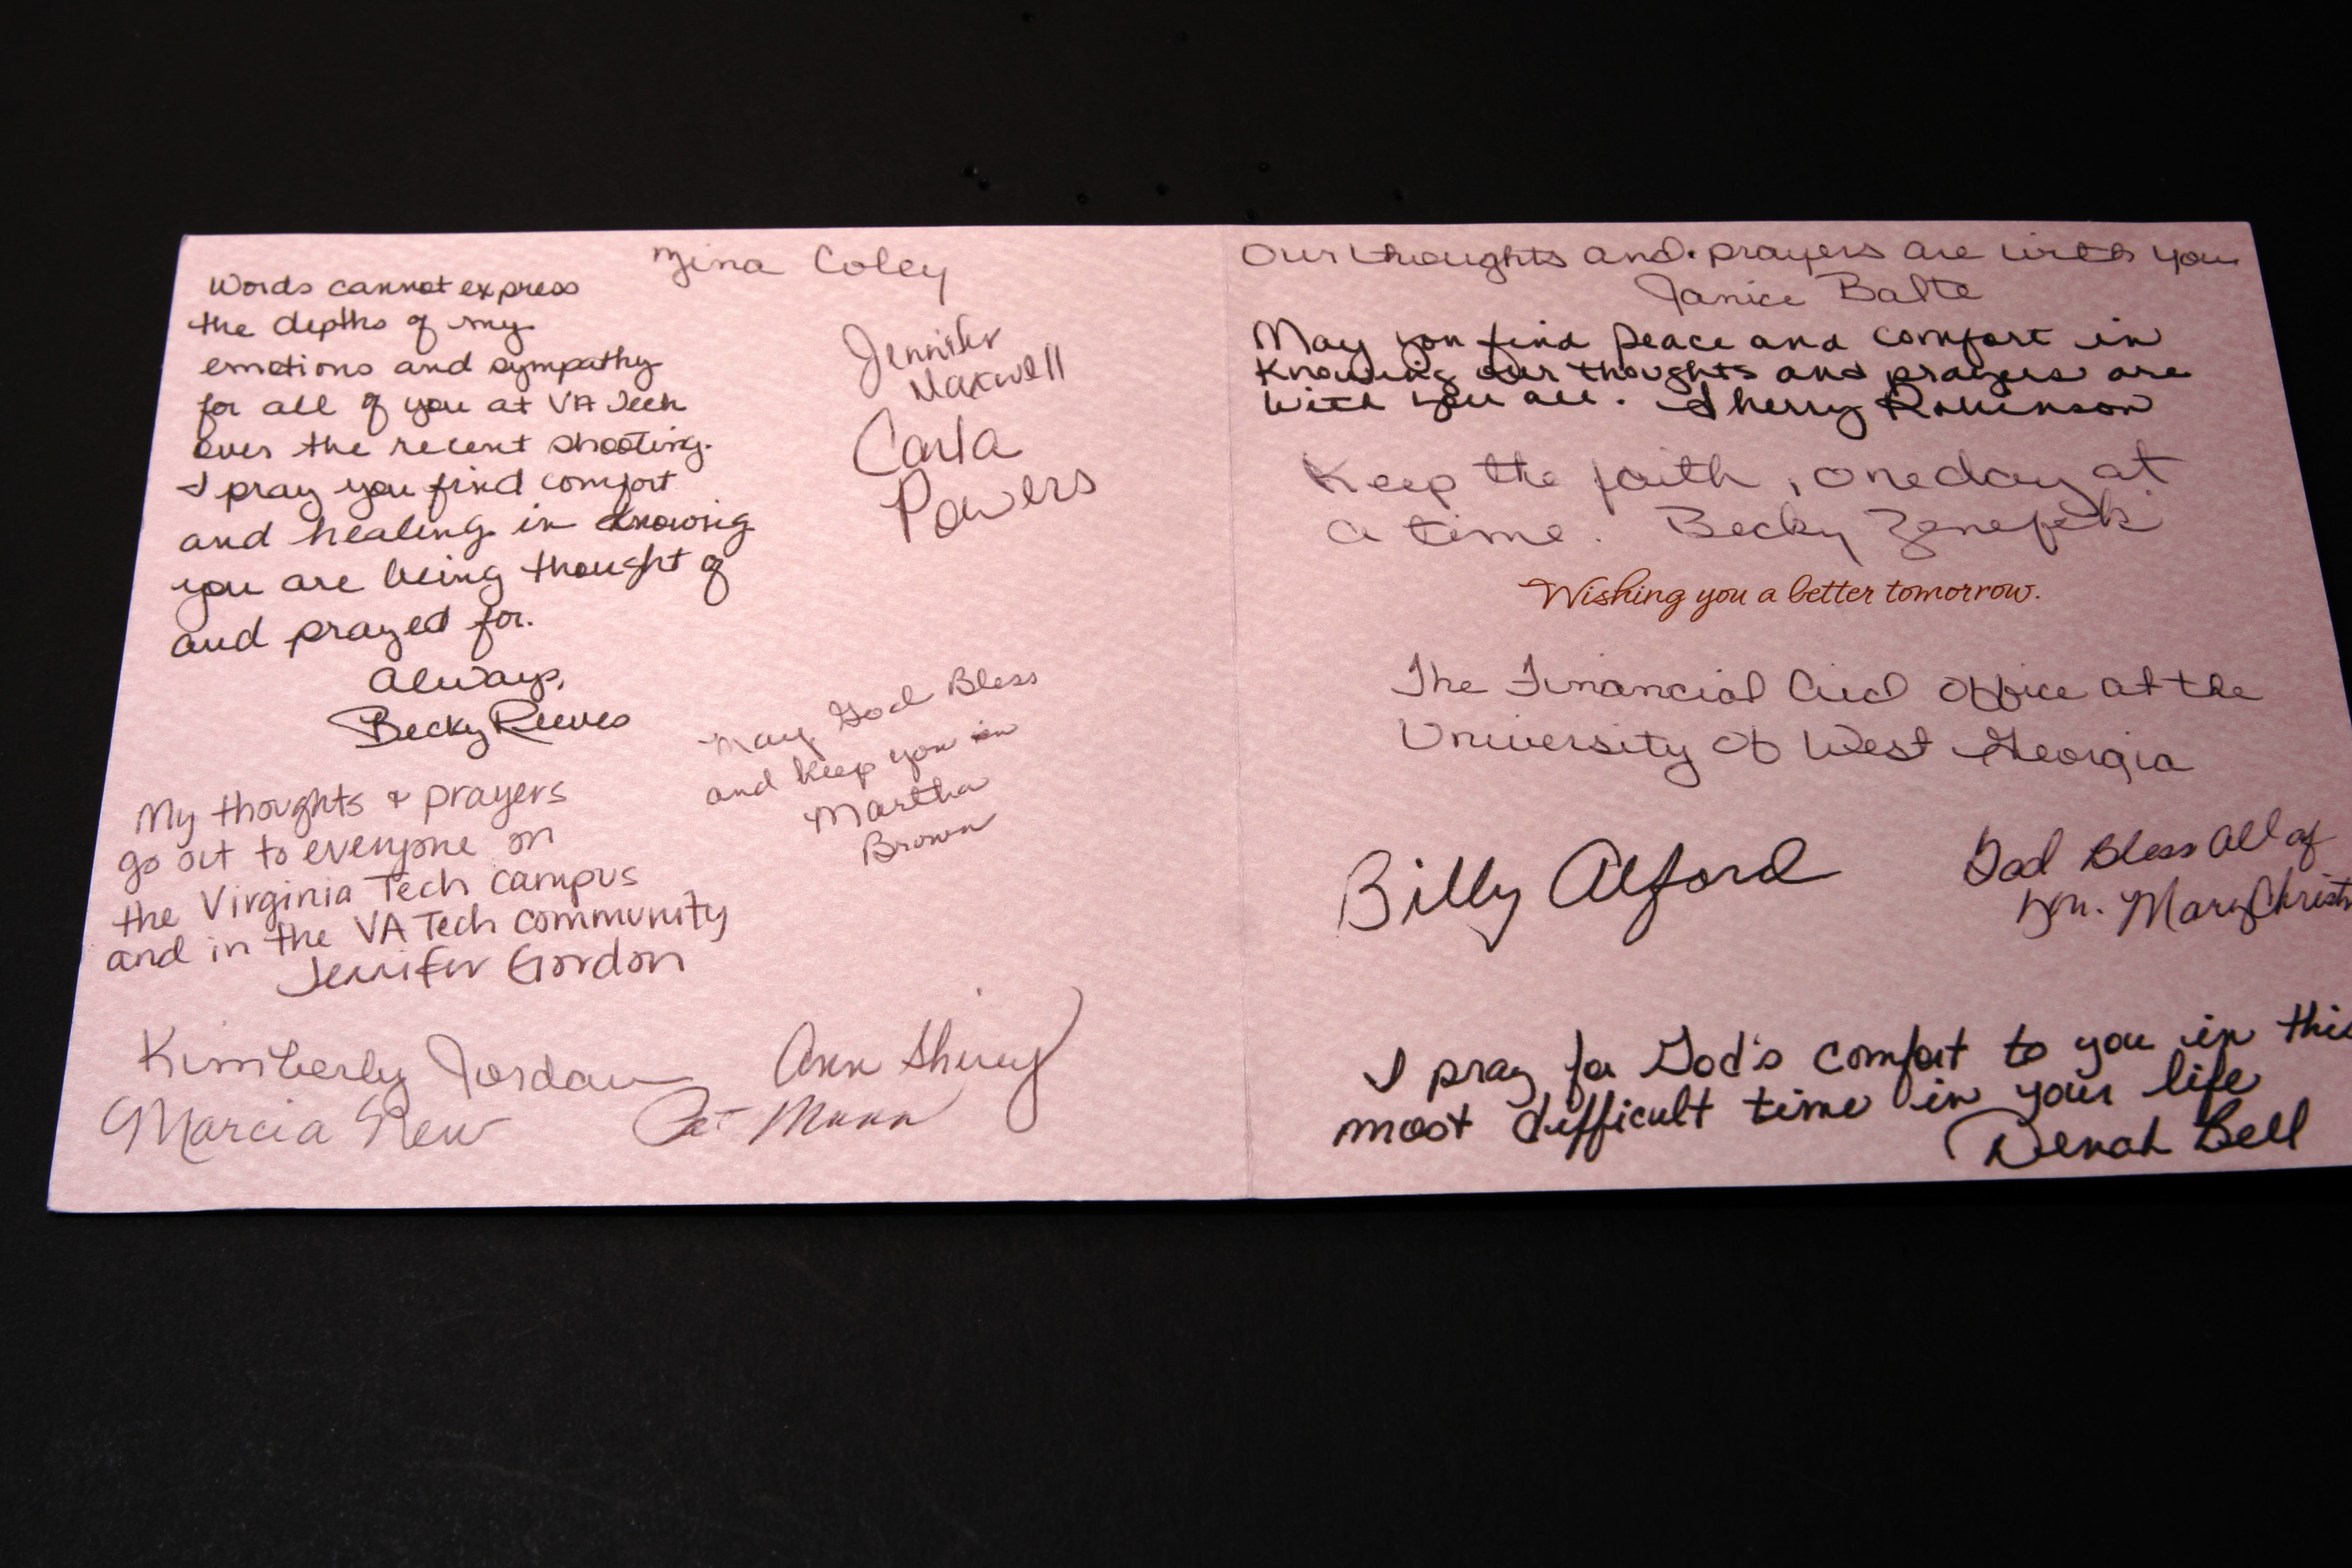 Zina Coley
Words cannot express
the depths of my
emotions and sympathy
for all of you at VA Tech
over the recent shooting.
I pray you find comfort
and healing in knowing
you are being thought of
and prayed for.
Always,
Becky Reeves
Jennifer
Maxwell
Carla
Powers
May God Bless
and keep you
Martha
Brown
My thoughts & prayers
go out to everyone on
the Virginia Tech campus
and in the VA Tech community
Jennifer Gordon
Kimberly Jordan
Ann Shirey
Marcia New
Pat Mann
Our thoughts and prayers are with you
Janice Balte
May you find peace and comfort in
Knowing our thoughts and prayers are
with you all. Sherry Robinson
Keep the faith, one day at
a time. Becky
Wishing you a better tomorrow.
The Financial Aid Office at the
University of West Georgia
Billy Alford
God Bless All of
you. Mary
I pray for God's comfort to you in this
most difficult time in your life
Denah Bell